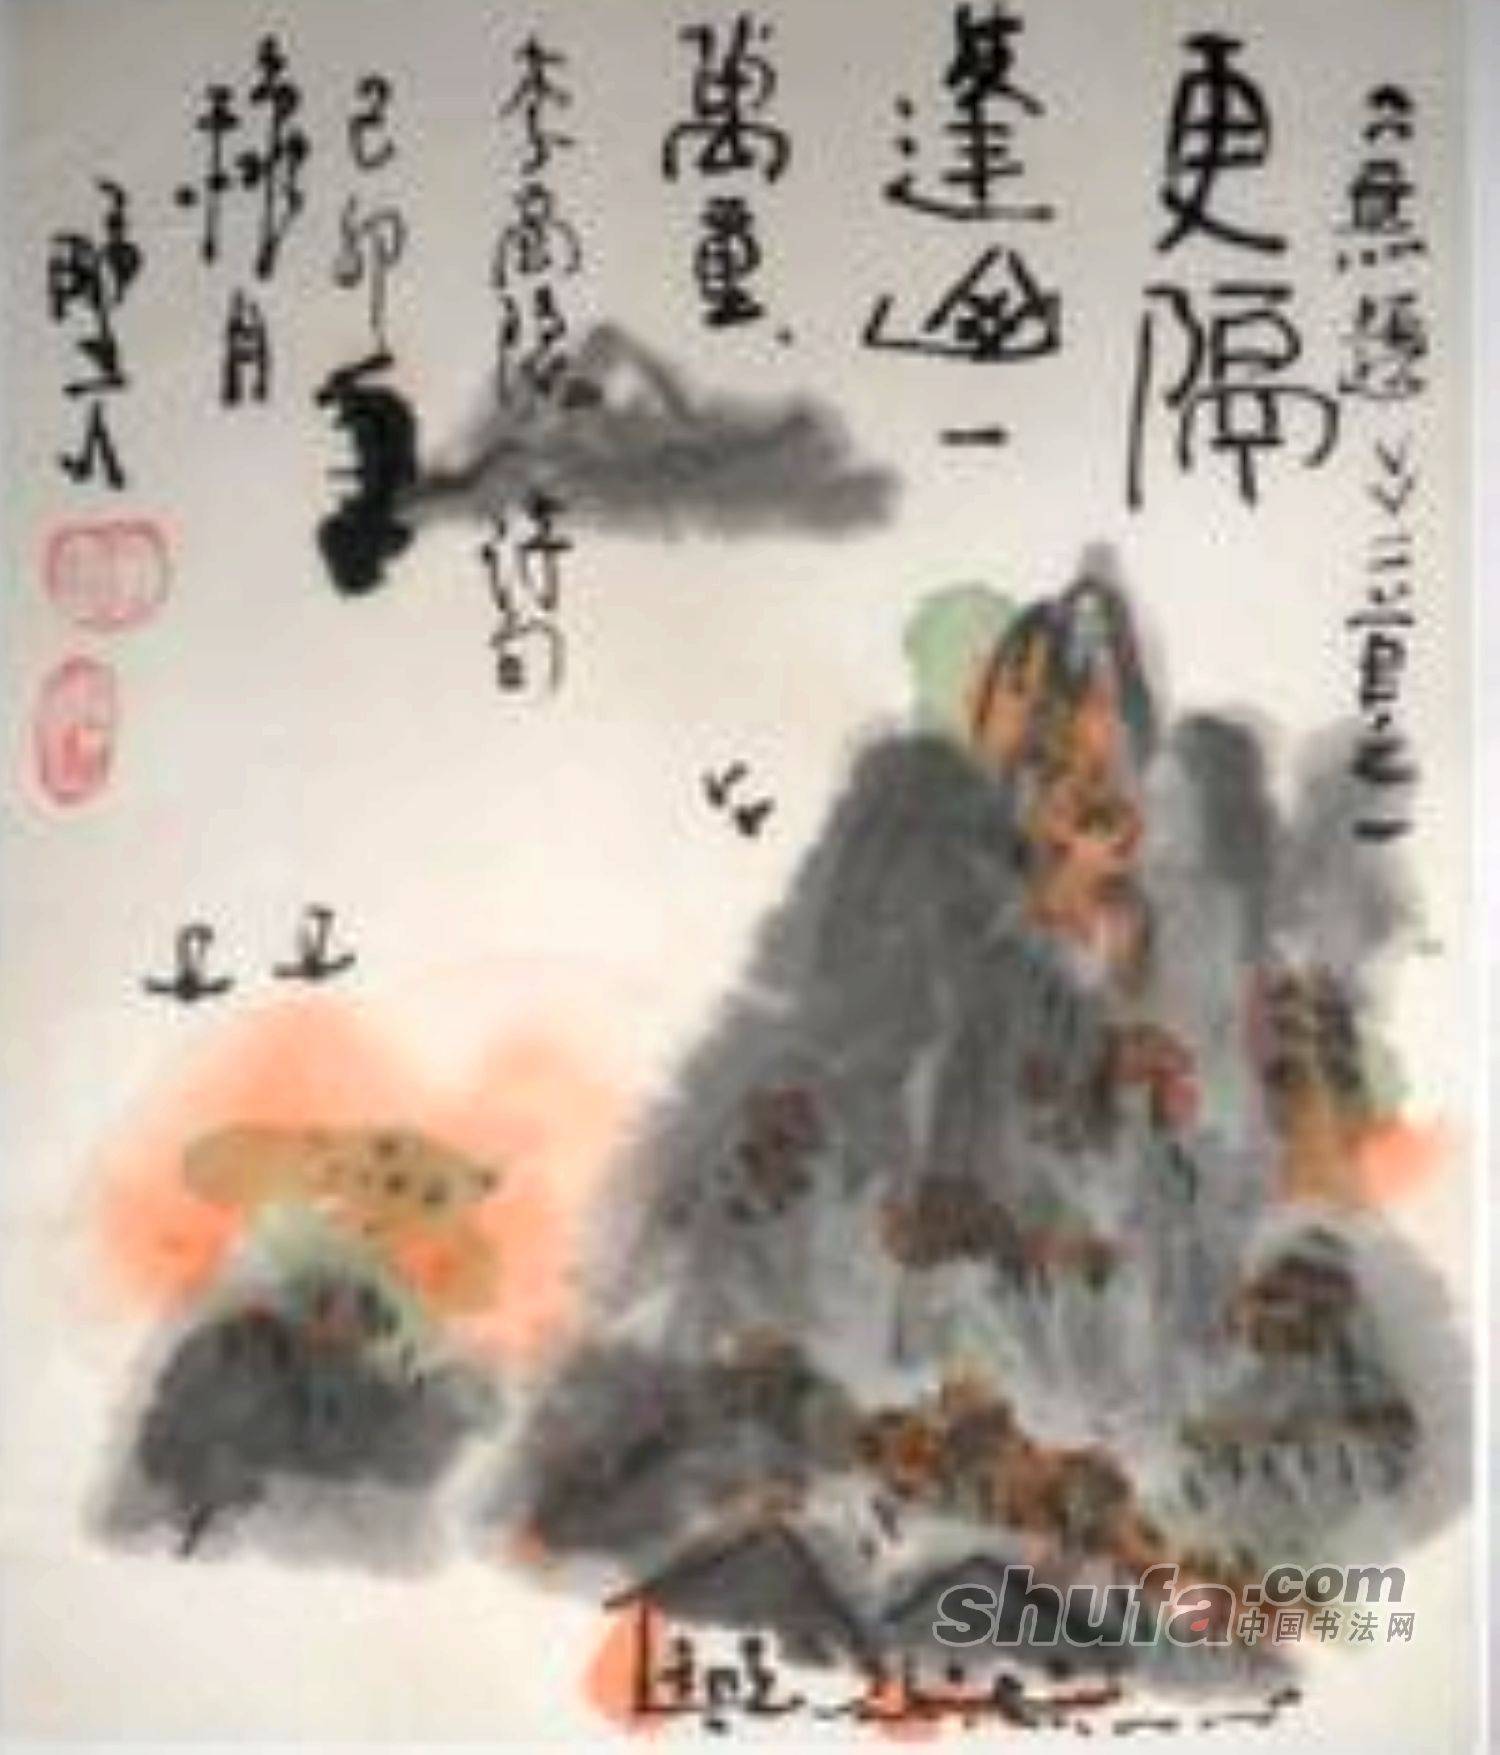 《無題》二首之一
更隔
蓬山一
萬重
李商隐诗句
己卯
月
人
shufa.com
中国书法网